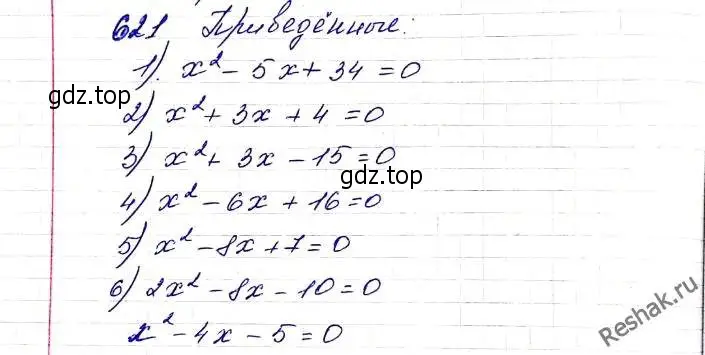 621 Приведённые:
1). x² - 5x + 34 = 0
gdz.top
2) x² + 3x + 4 = 0
3) x² + 3x - 15 = 0
gdz.top
4) x² - 6x + 16 = 0
5) x² - 8x + 7 = 0
6) 2x² - 8x - 10 = 0
x² - 4x - 5 = 0
Reshak.ru